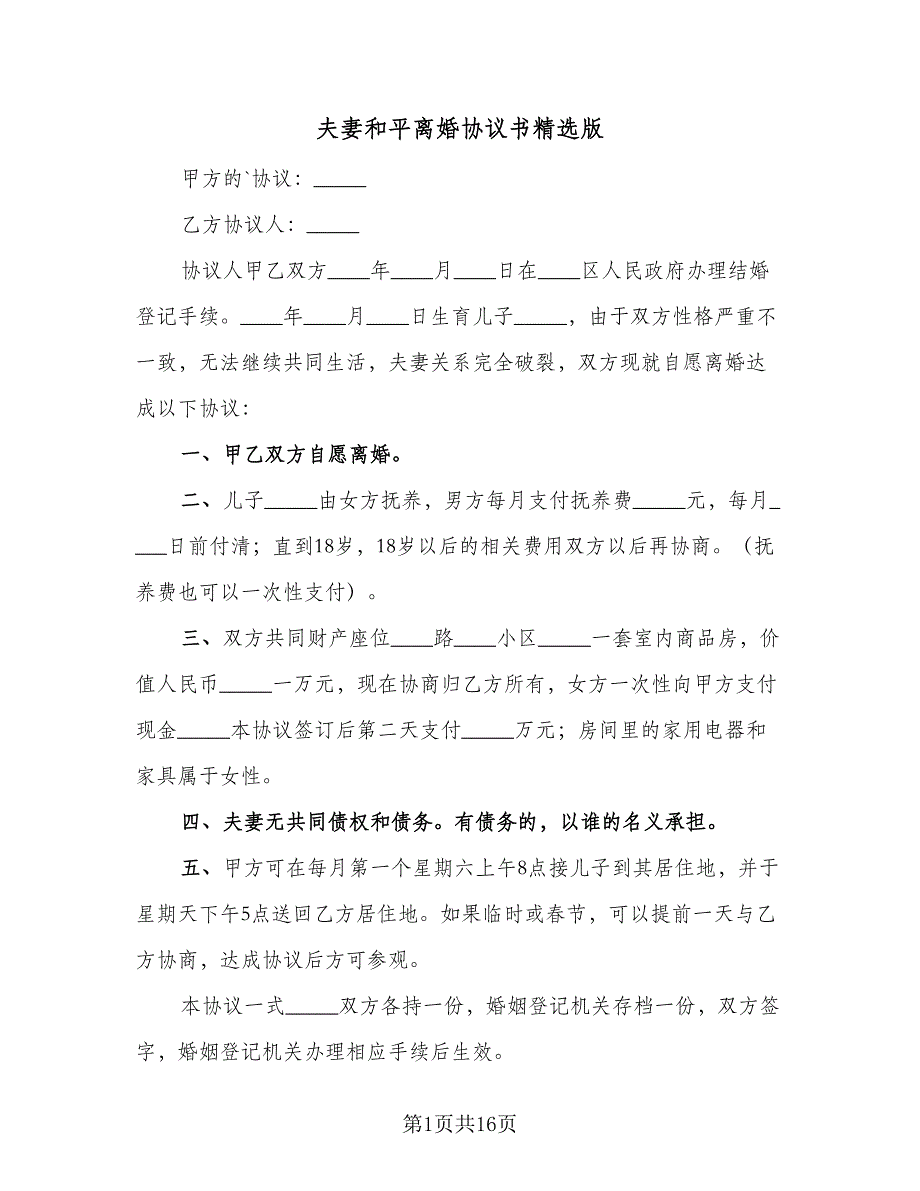 夫妻和平离婚协议书精选版
甲方的`协议：_____
乙方协议人：_____
协议人甲乙双方____年____月____日在____区人民政府办理结婚
登记手续。____年____月____日生育儿子_____，由于双方性格严重不
一致，无法继续共同生活，夫妻关系完全破裂，双方现就自愿离婚达
成以下协议：
一、甲乙双方自愿离婚。
二、儿子_____由女方抚养，男方每月支付抚养费_____元，每月_
___日前付清；直到18岁，18岁以后的相关费用双方以后再协商。（抚
养费也可以一次性支付）。
三、双方共同财产座位____路____小区_____一套室内商品房，价
值人民币_____一万元，现在协商归乙方所有，女方一次性向甲方支付
现金_____本协议签订后第二天支付_____万元；房间里的家用电器和
家具属于女性。
四、夫妻无共同债权和债务。有债务的，以谁的名义承担。
五、甲方可在每月第一个星期六上午8点接儿子到其居住地，并于
星期天下午5点送回乙方居住地。如果临时或春节，可以提前一天与乙
方协商，达成协议后方可参观。
本协议一式_____双方各持一份，婚姻登记机关存档一份，双方签
字，婚姻登记机关办理相应手续后生效。
第1页共16页